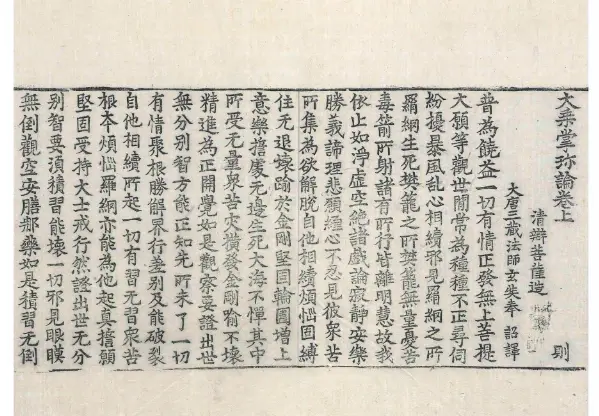 大乘掌珍論卷上
則
清辯菩薩造
大唐三藏法師玄奘奉 詔譯
普為饒益一切有情正發無上菩提
大願等觀世間常為種種不正尋伺
紛擾暴風乱心相續邪見羅網之所
羅網生死樊籠之所樊籠無量憂苦
毒箭所射諸有所行皆離明慧故我
依止如淨虛空絕諸戲論寂静安樂
勝義諦理悲願纏心不忍見彼衆苦
所集為欲解脫自他相續煩惱固縛
住无退壞踰於金剛堅固輪圍增上
意樂擔處无邊生死大海不憚其中
所受无量衆苦灾橫發金剛喻不壞
精進為正開覺如是觀察要證出世
無分別智方能正知先所未了一切
有情聚根勝解界行差別及能破裂
自他相續所起一切有習无習衆苦
根本煩惱羅網亦能為他起真擔願
堅固受持大士戒行然證出世无分
別智要須積習能壞一切邪見眼瞙
無倒觀空安膳那藥如是積習无倒